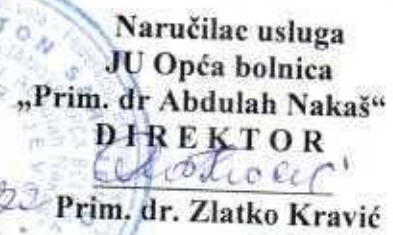 Naručilac usluga
JU Opća bolnica
„Prim. dr Abdulah Nakaš“
D I R E K T O R
Prim. dr. Zlatko Kravić